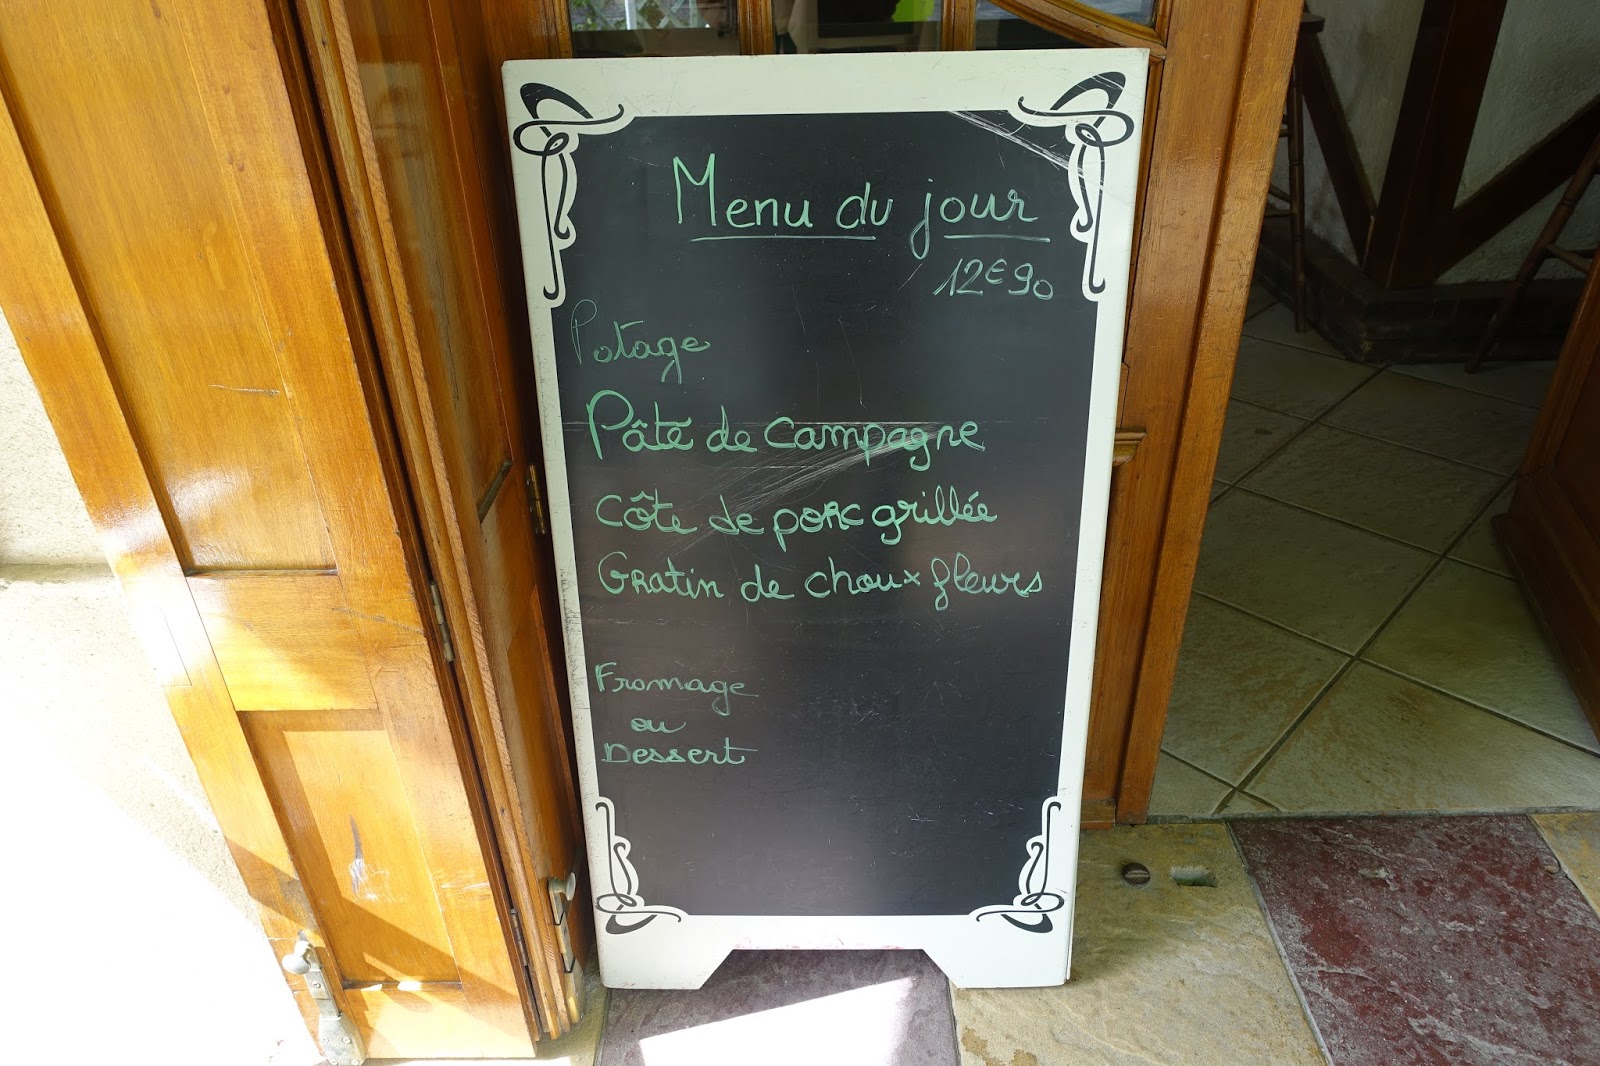 Menu du jour
12€90
Potage
Pâté de campagne
Côte de porc grillée
Gratin de choux fleurs
Fromage
ou
Dessert